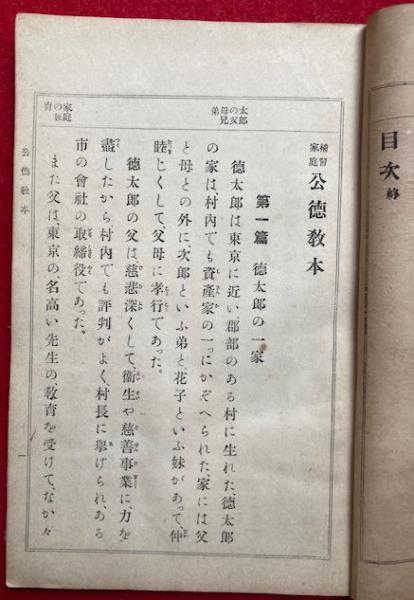 目次終
補習
家庭
公德敎本
太郎
の父
母兄
弟
家庭
の敎
育
第一篇 德太郎の一家
德太郎は東京に近い、郡部のある村に生れた、德太郎
の家は、村内でも資產家の一つにかぞへられた、家には父
と母との外に次郎といふ弟と、花子といふ妹があつて、仲
睦じくして父母に孝行であつた。
德太郎の父は、慈悲深くして、衞生や慈善事業に、力を
盡したから村內でも評判がよく、村長に擧げられ、ある
市の會社の取締役であつた。
また父は、東京の、名高い先生の、敎育を受けて、なか〲
公德敎本